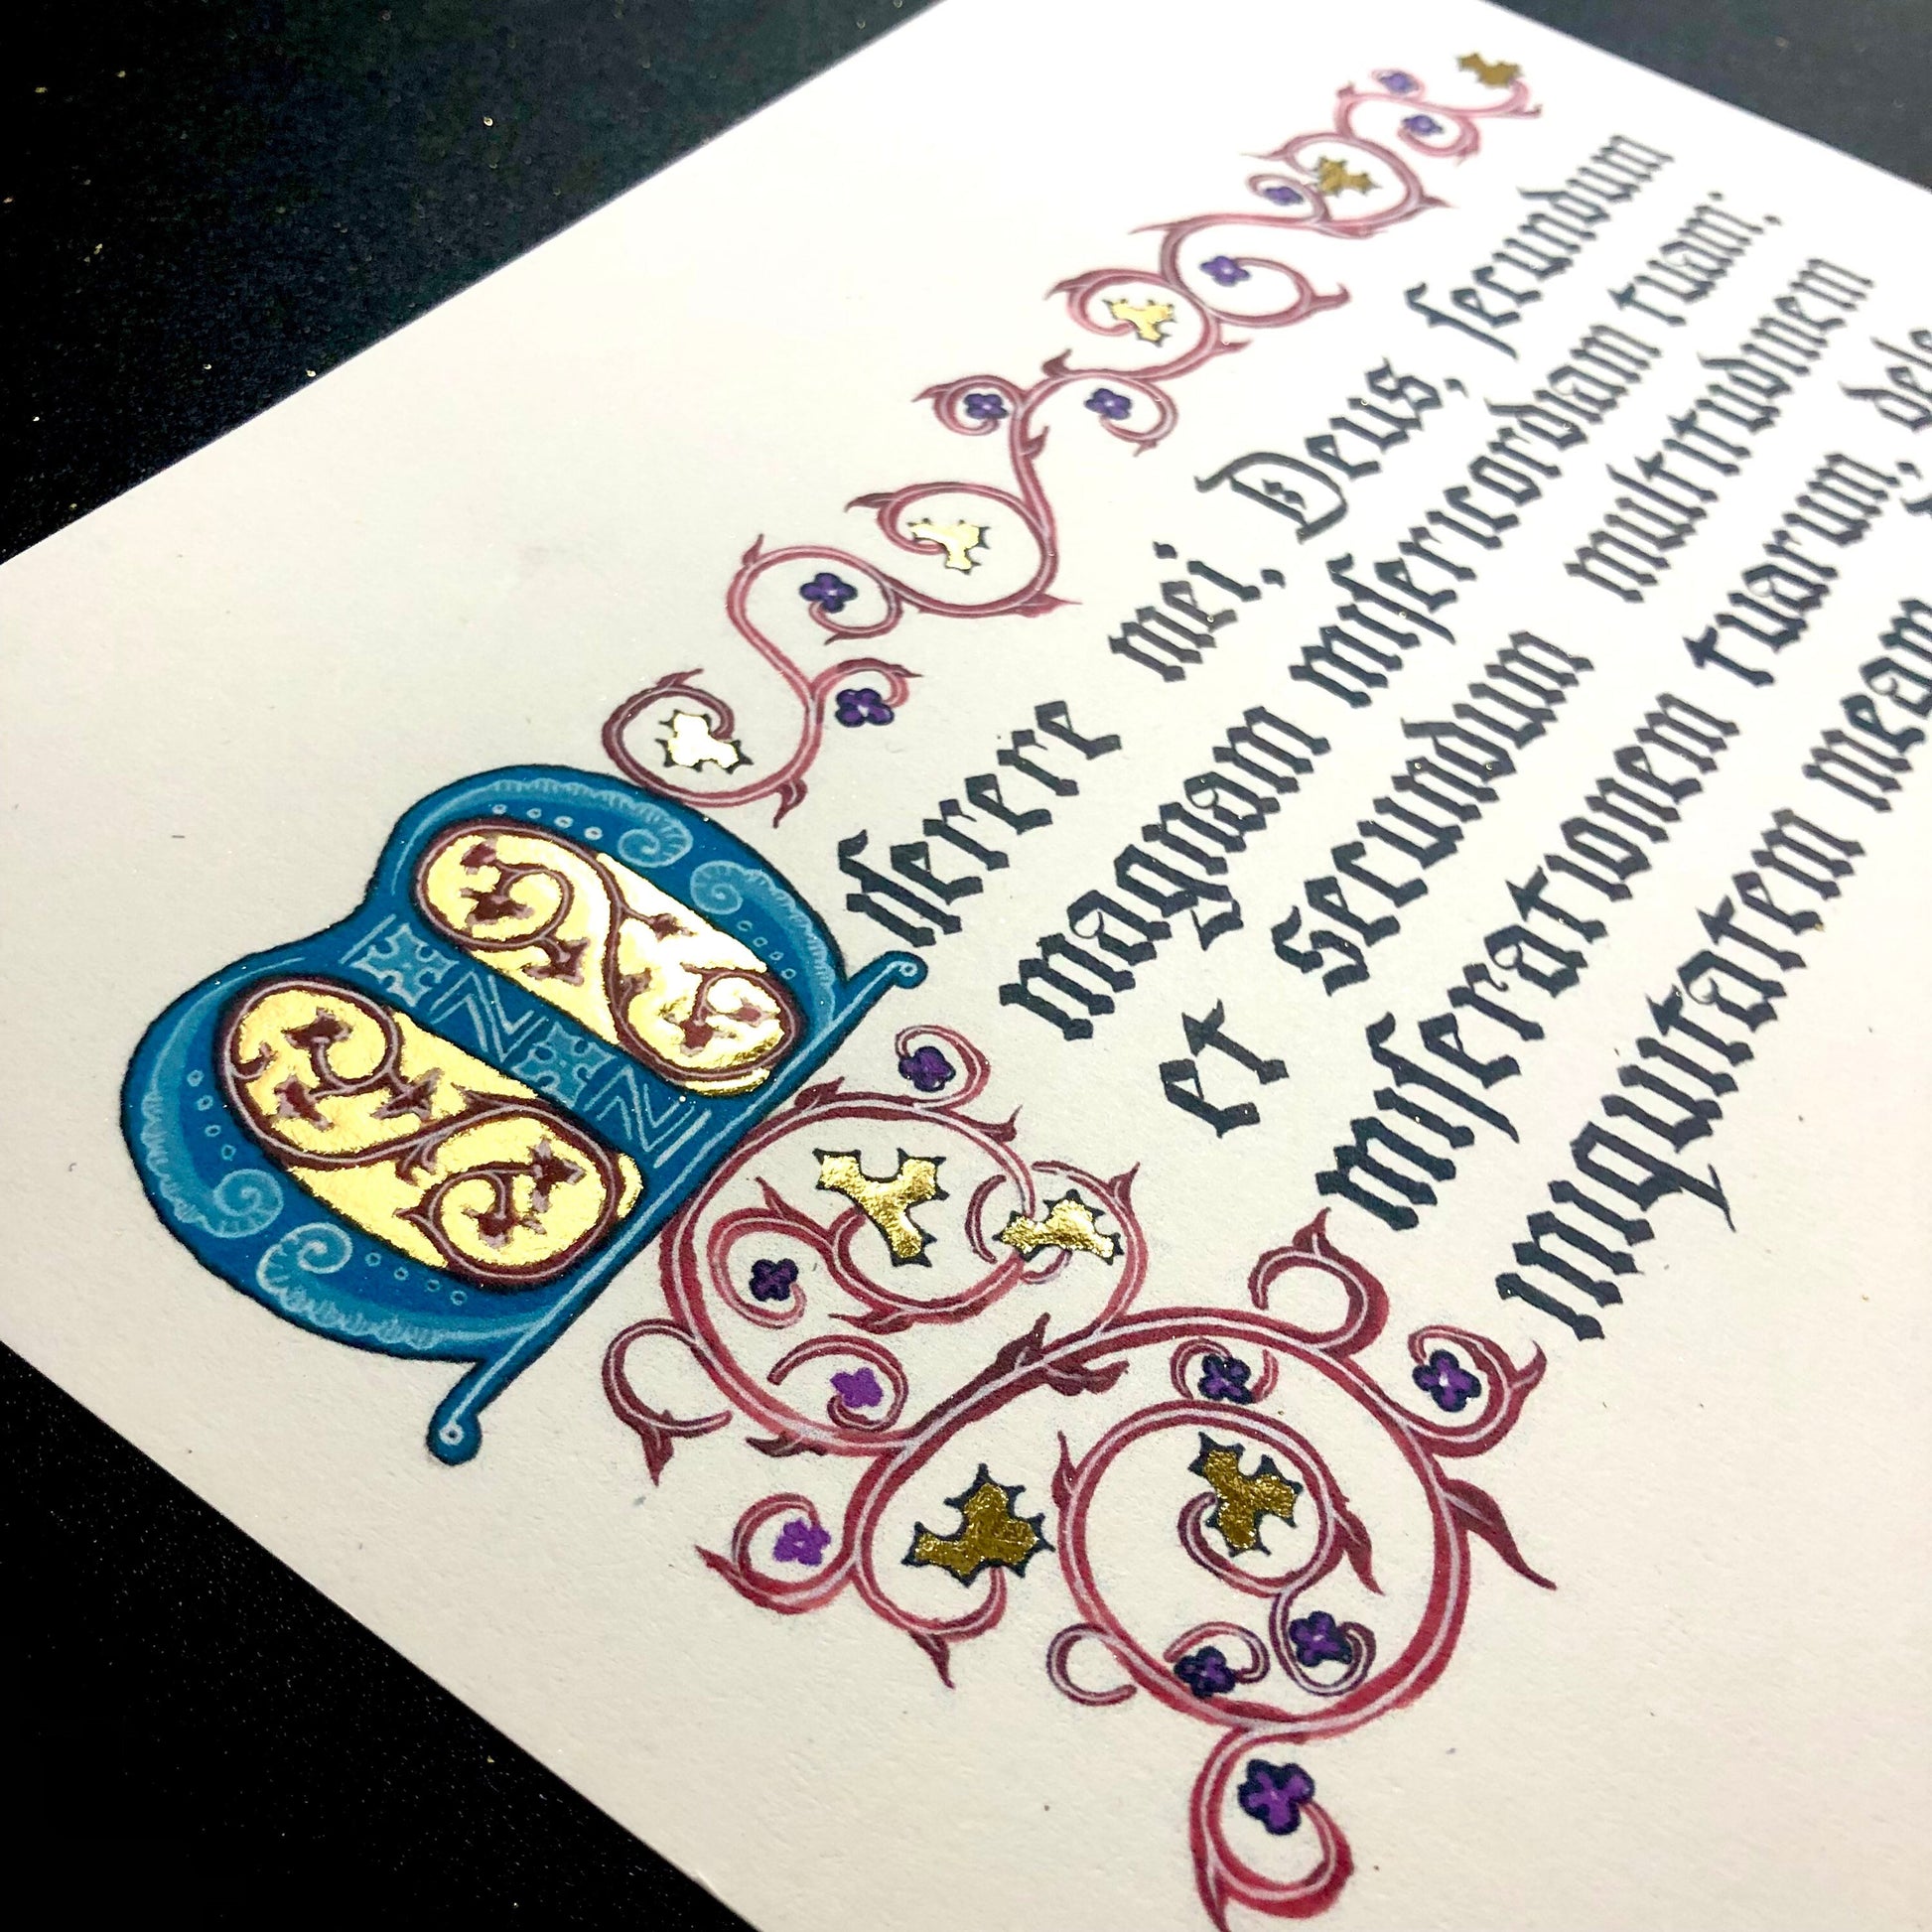 Miſerere mei, Deus, ſecundum
magnam miſericordiam tuam;
et Secundum multitudinem
miſerationem tuarum, dele
iniquitatem meam